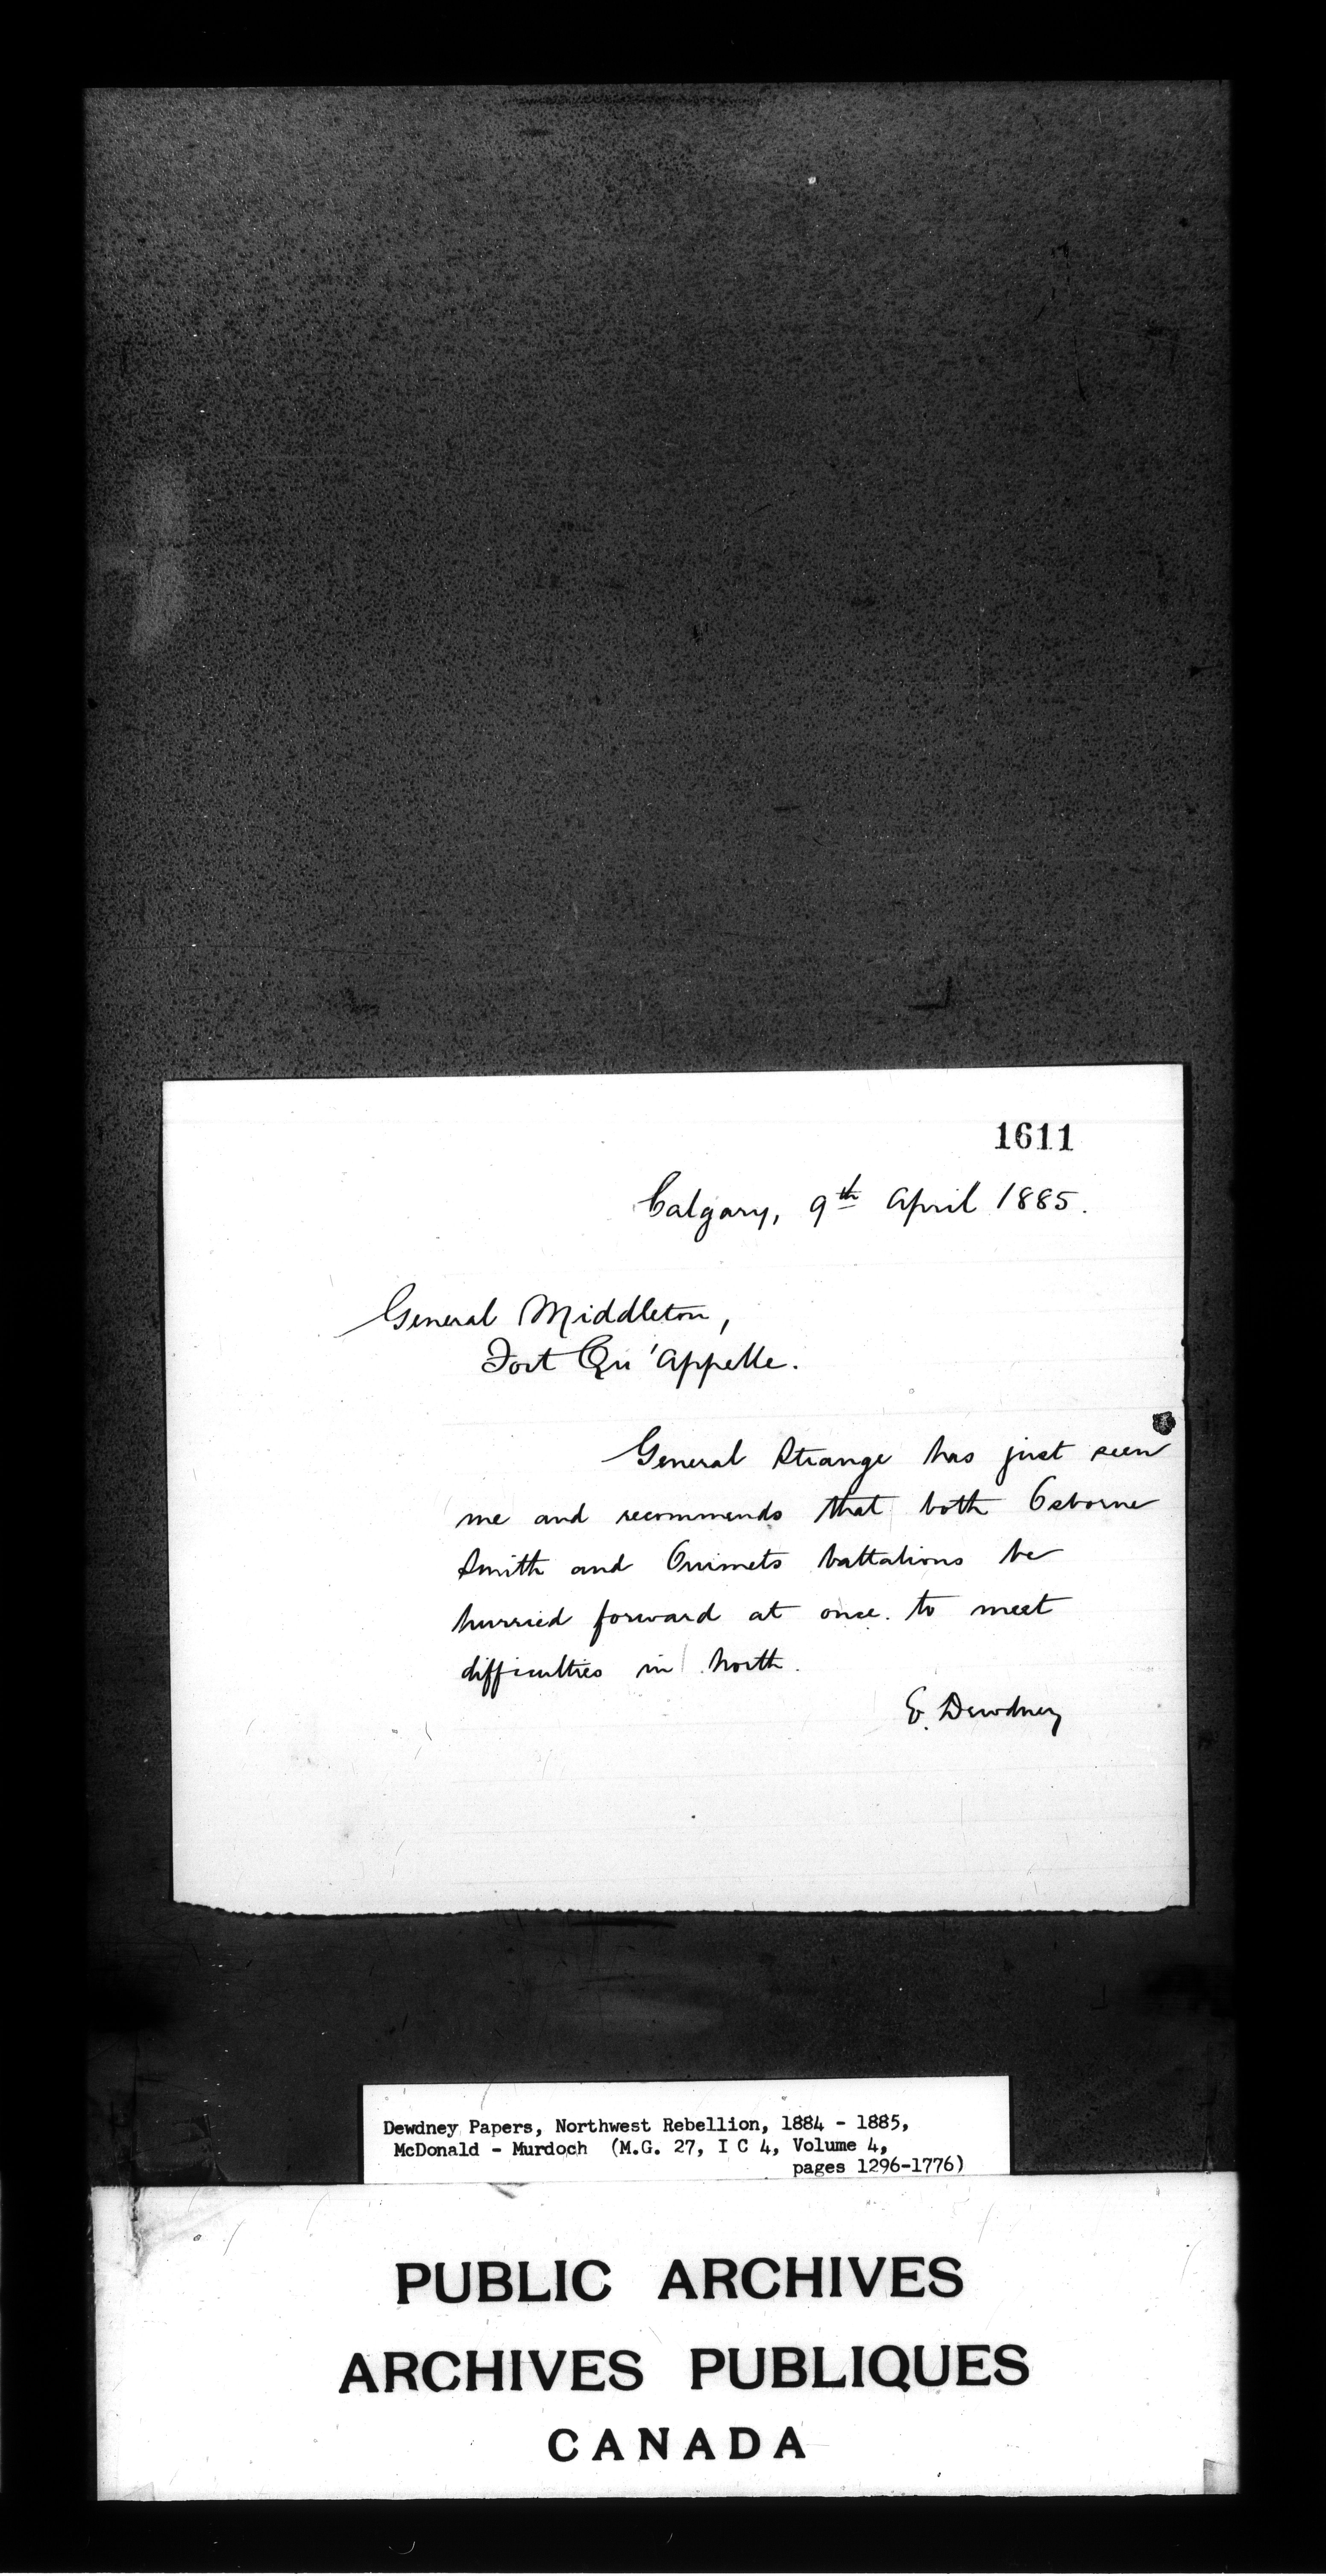 1611
Calgary, 9th April 1885.
General Middleton,
Fort Qu'Appelle.
General Strange has just seen
me and recommends that both Osborne
Smith and Ouimets battalions be
hurried forward at once to meet
difficulties in North.
E. Dewdney
Dewdney Papers, Northwest Rebellion, 1884 - 1885,
McDonald - Murdoch (M.G. 27, I C 4, Volume 4,
pages 1296-1776)
PUBLIC ARCHIVES
ARCHIVES PUBLIQUES
CANADA